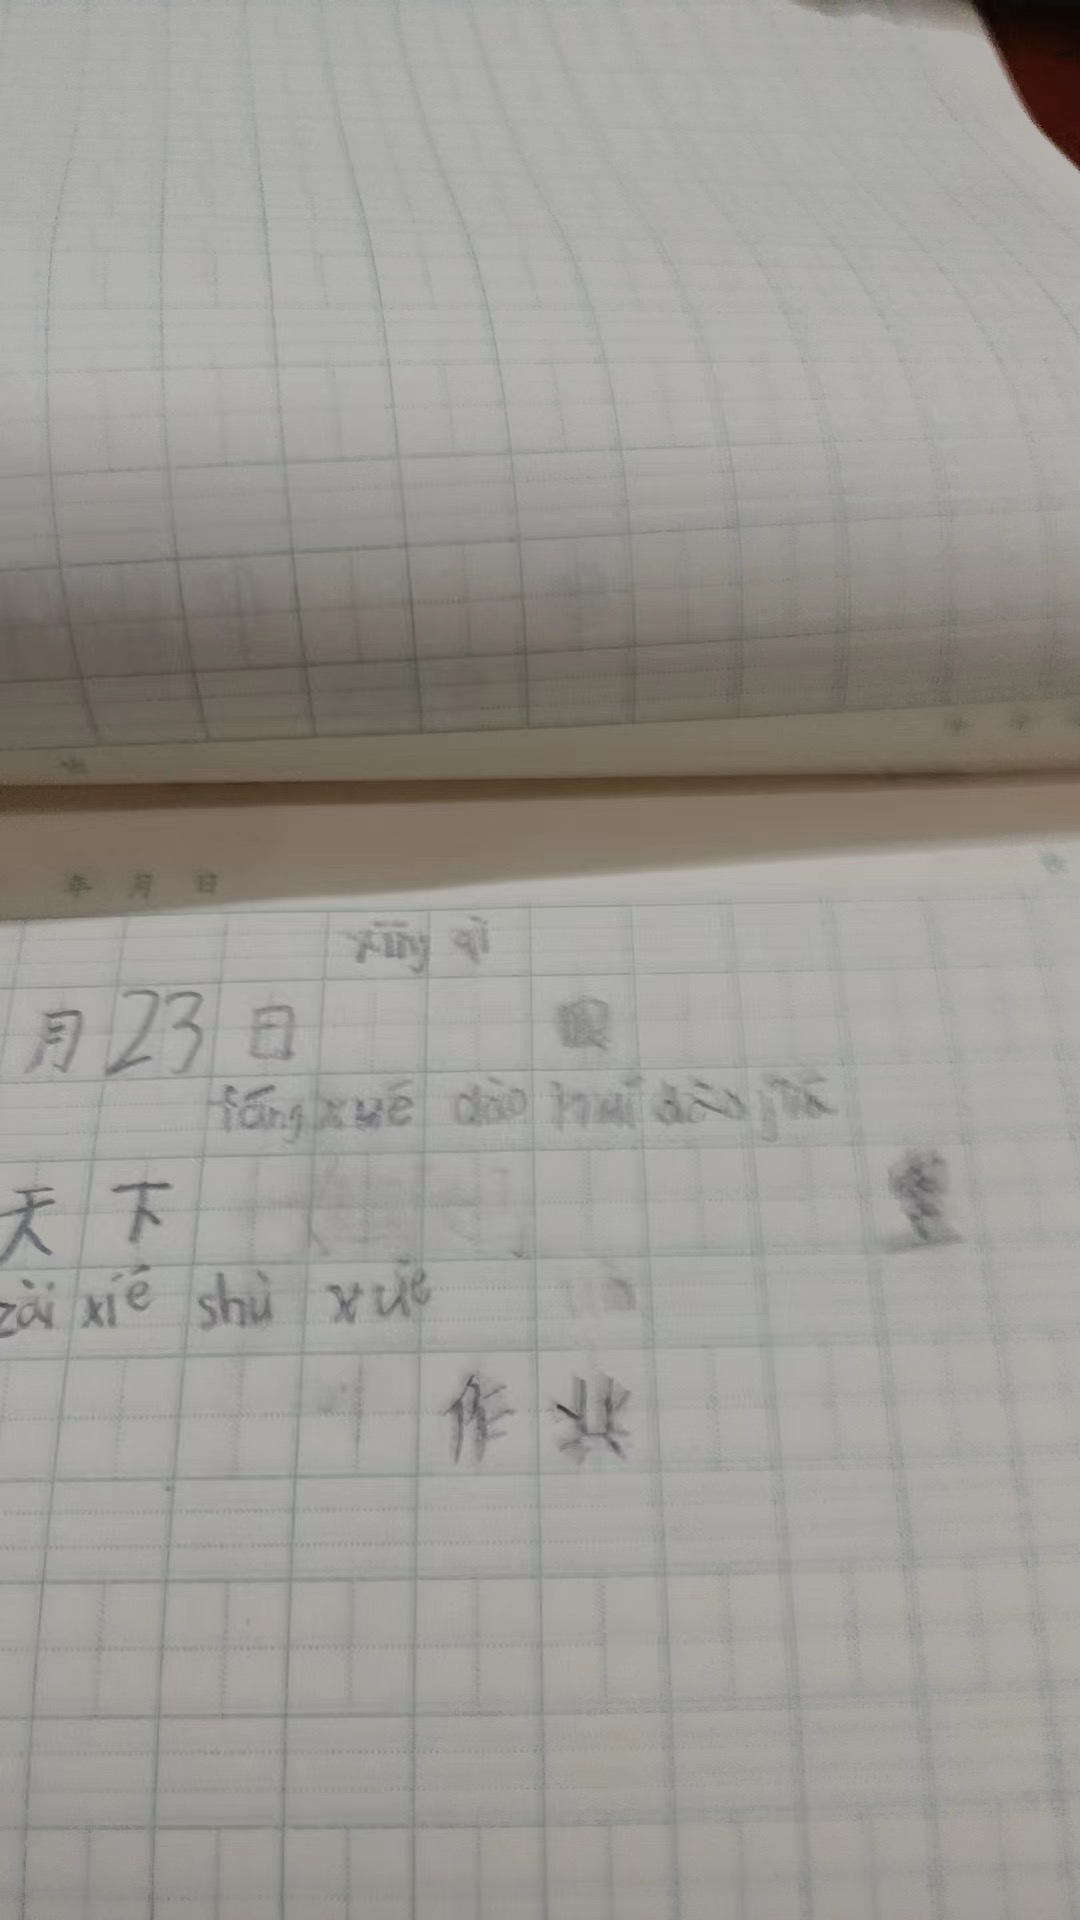 年 月 日
xīng qī
月 23 日
fàng xué dào huí dào jiā
天 下
zài xiě shù xué
作 业